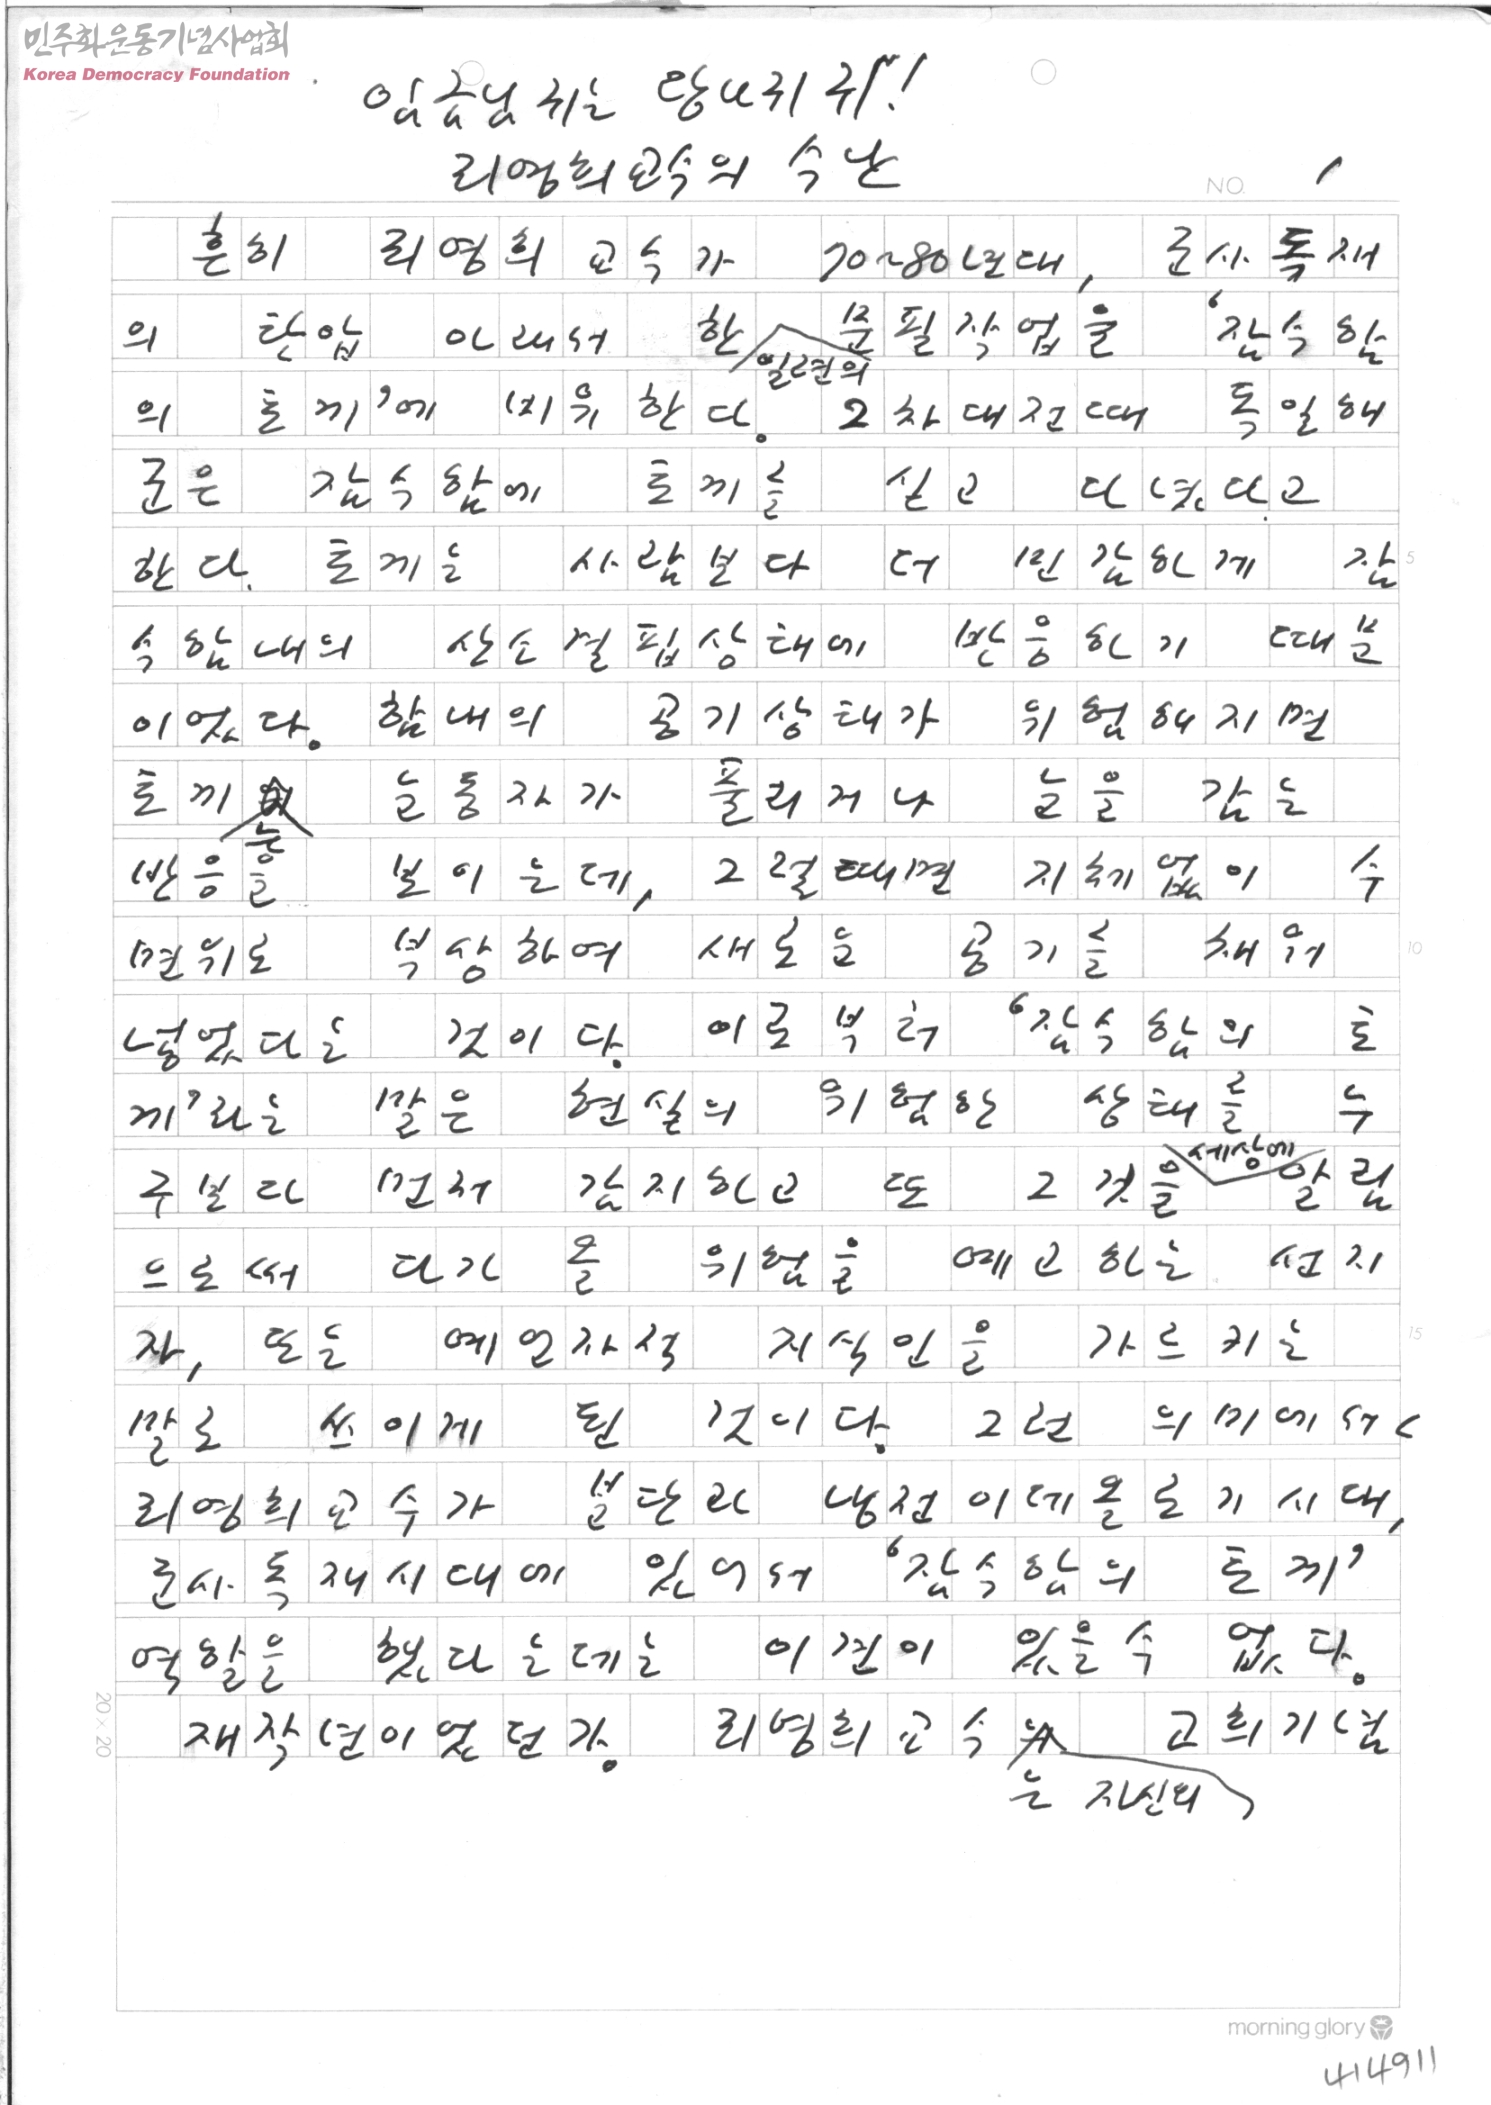 민주화운동기념사업회
Korea Democracy Foundation
임금님 귀는 당나귀 귀!
리영희교수의 수난
NO. 1
흔히 리영희 교수가 70~80년대, 군사독재
의 탄압 아래서 한 일련의 문필작업을 '잠수함
의 토끼'에 비유한다. 2차대전때 독일해
군은 잠수함에 토끼를 싣고 다녔다고
한다. 토끼는 사람보다 더 민감하게 잠 5
수함내의 산소결핍상태에 반응하기 때문
이었다. 함내의 공기상태가 위험해지면
토끼는 눈동자가 풀리거나 눈을 감는
반응을 보이는데, 그럴때면 지체없이 수
면위로 부상하여 새로운 공기를 채워 10
넣었다는 것이다. 이로부터 '잠수함의 토
끼'라는 말은 현실의 위험한 상태를 누
구보다 먼저 감지하고 또 그것을 세상에 알림
으로써 다가올 위험을 예고하는 선지
자, 또는 예언자적 지식인을 가르키는 15
말로 쓰이게 된 것이다. 그런 의미에서
리영희교수가 분단과 냉전이데올로기시대,
군사독재시대에 있어서 '잠수함의 토끼'
역할을 했다는데는 이견이 있을수 없다.
재작년이었던가. 리영희교수는 자신의 고희기념
20×20
morning glory
414911